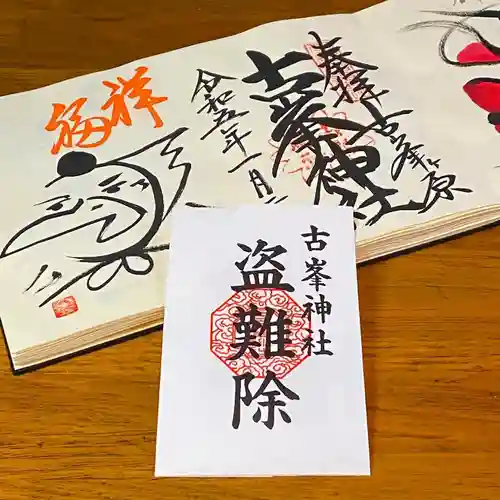 奉拝
古峯ヶ原
古峯神社
令和五年一月
福祥
古峯神社
盗難除